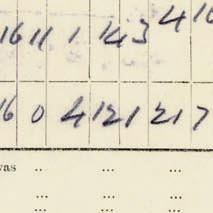 16 11 1 143 416
16 0 4 121 217
was ... ... ...
... ... ...
... ... ...